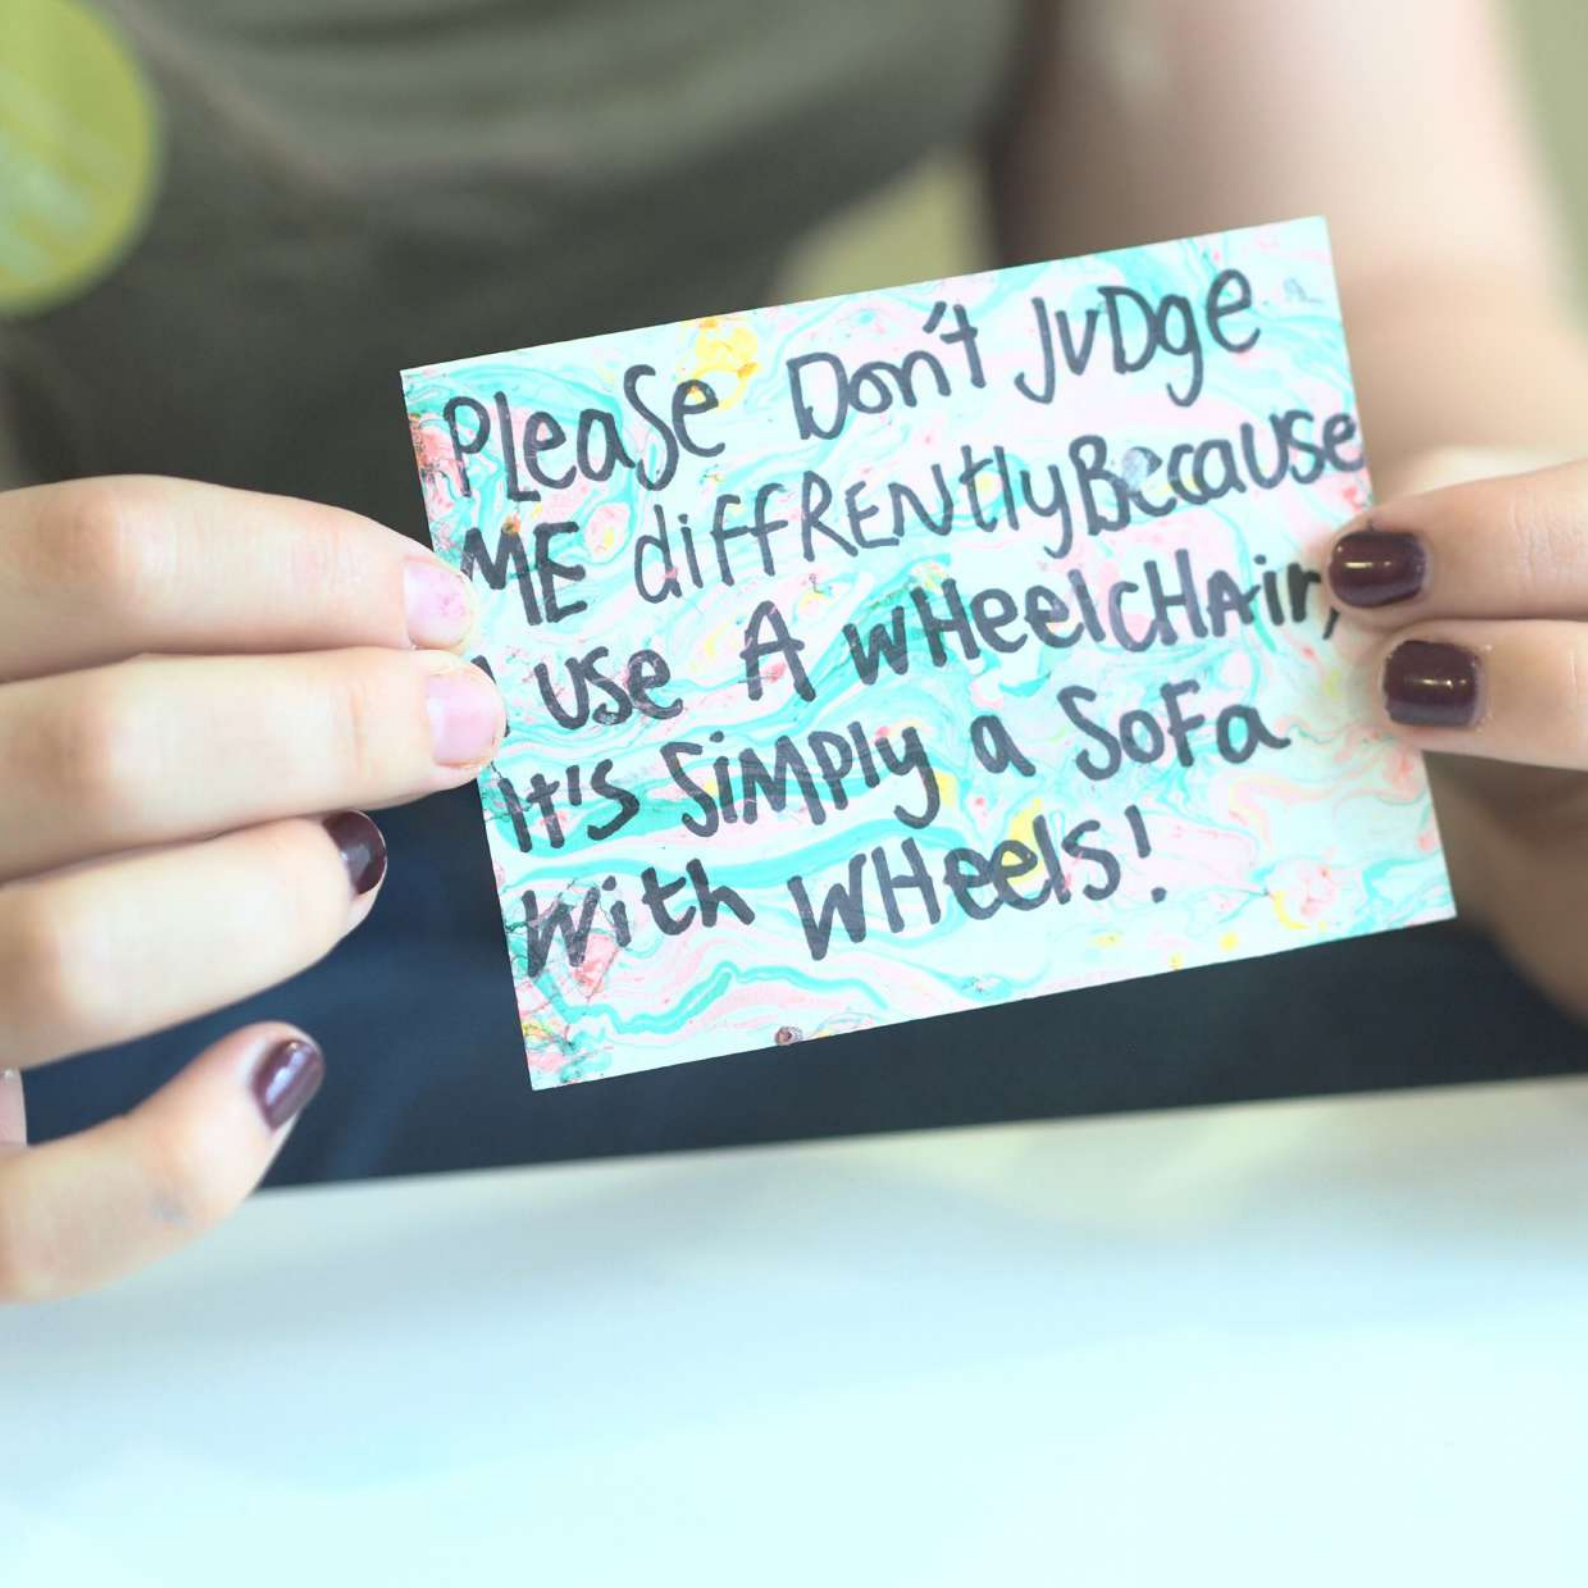 PLeaSe Don't JuDge
ME diffRENtly Because
I use A wHeelcHAir,
It's SiMPly a SoFa
With WHeels!